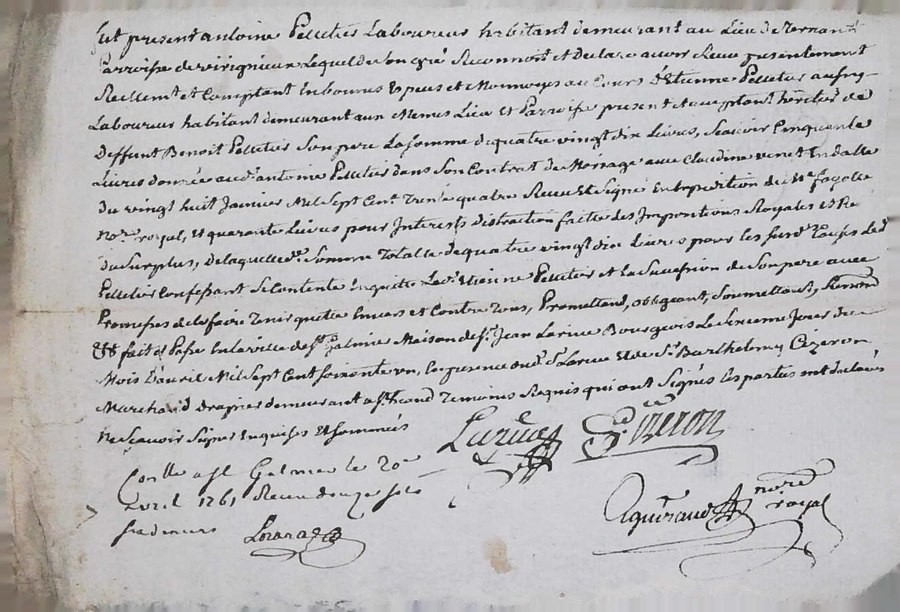 fut present antoine Pelletier Laboureur habitant demeurant au Lieu de Ternant
Parroisse de virignieux Lequel de Son gré Reconnoit et declare avoir Receu presentement
Reellemt et Comptant En bonnes Especes et Monnoyes au Cours d'Etienne Pelletier aussy
Laboureur habitant demeurant aux Memes Lieu Et Parroisse present et acceptant héritier de
deffunt Benoit Pelletier Son pere La Somme de quatre vingt dix Livres, Scavoir Cinquante
Livres donnée audt antoine Pelletier dans Son Contrat de Mariage avec Claudine venet En datte
Du vingt huit Janvier Mil Sept Cent Trente quatre Receu Et Signé En Expedition de Me
Nore royal, et quarante Livres pour Interests distraction faitte des Impositions Royales et
du Surplus, de laquelle de Somme Totalle de quatre vingt dix Livres pour les Susd Causes Led
Pelletier Confessant Se Contente En quitte Ledt Etienne Pelletier et la Succession de Son pere avec
Promesses de le faire Tenir quitte Envers et Contre Tous, Promettant, obligeant, Soumettant, Renond
fait et Passé En la ville de St Galmier Maison de Sr Jean Larue Bourgeois Le Jour du
Mois D'avril Mil Sept Cent Soixante un, En presence dud Sr Larue et de Sr Barthelemy Cizeron
Marchand drapier demeurant Temoins Requis qui ont Signés les parties ont declarées
Ne Scavoir Signer Enquises Et Sommées
Larue Cizeron
Conlle a St Galmier le 20e
avril 1761 Receu douze sols
six deniers
nore
royal